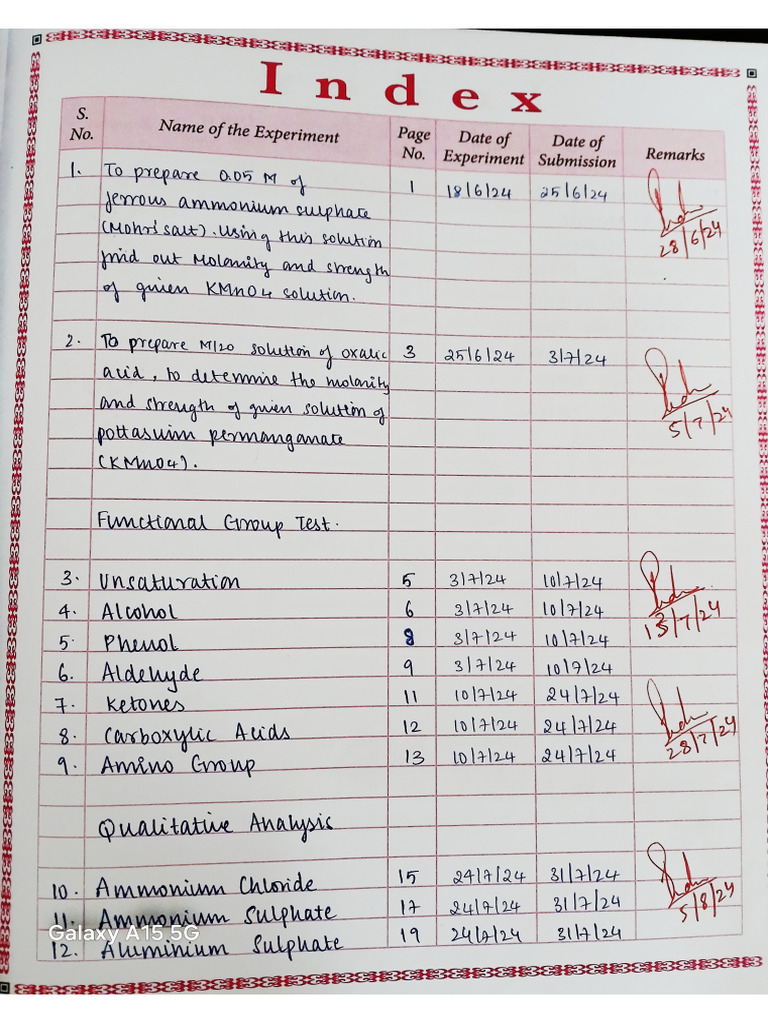 Index
S. No. Name of the Experiment Page No. Date of Experiment Date of Submission Remarks
1. To prepare 0.05 M of 1 18/6/24 25/6/24
ferrous ammonium sulphate
(Mohr's salt). Using this solution 28/6/24
find out Molarity and strength
of given KMnO4 solution.
2. To prepare M/20 solution of oxalic 3 25/6/24 3/7/24
acid, to determine the molarity
and strength of given solution of 5/7/24
pottasuim permanganate
(KMnO4).
Functional Group Test.
3. Unsaturation 5 3/7/24 10/7/24
4. Alcohol 6 3/7/24 10/7/24
5. Phenol 8 3/7/24 10/7/24 13/7/24
6. Aldehyde 9 3/7/24 10/7/24
7. Ketones 11 10/7/24 24/7/24
8. Carboxylic Acids 12 10/7/24 24/7/24 28/7/24
9. Amino Group 13 10/7/24 24/7/24
Qualitative Analysis
10. Ammonium Chloride 15 24/7/24 31/7/24
11. Ammonium Sulphate 17 24/7/24 31/7/24 5/8/24
Galaxy A15 5G
12. Aluminium Sulphate 19 24/7/24 31/7/24